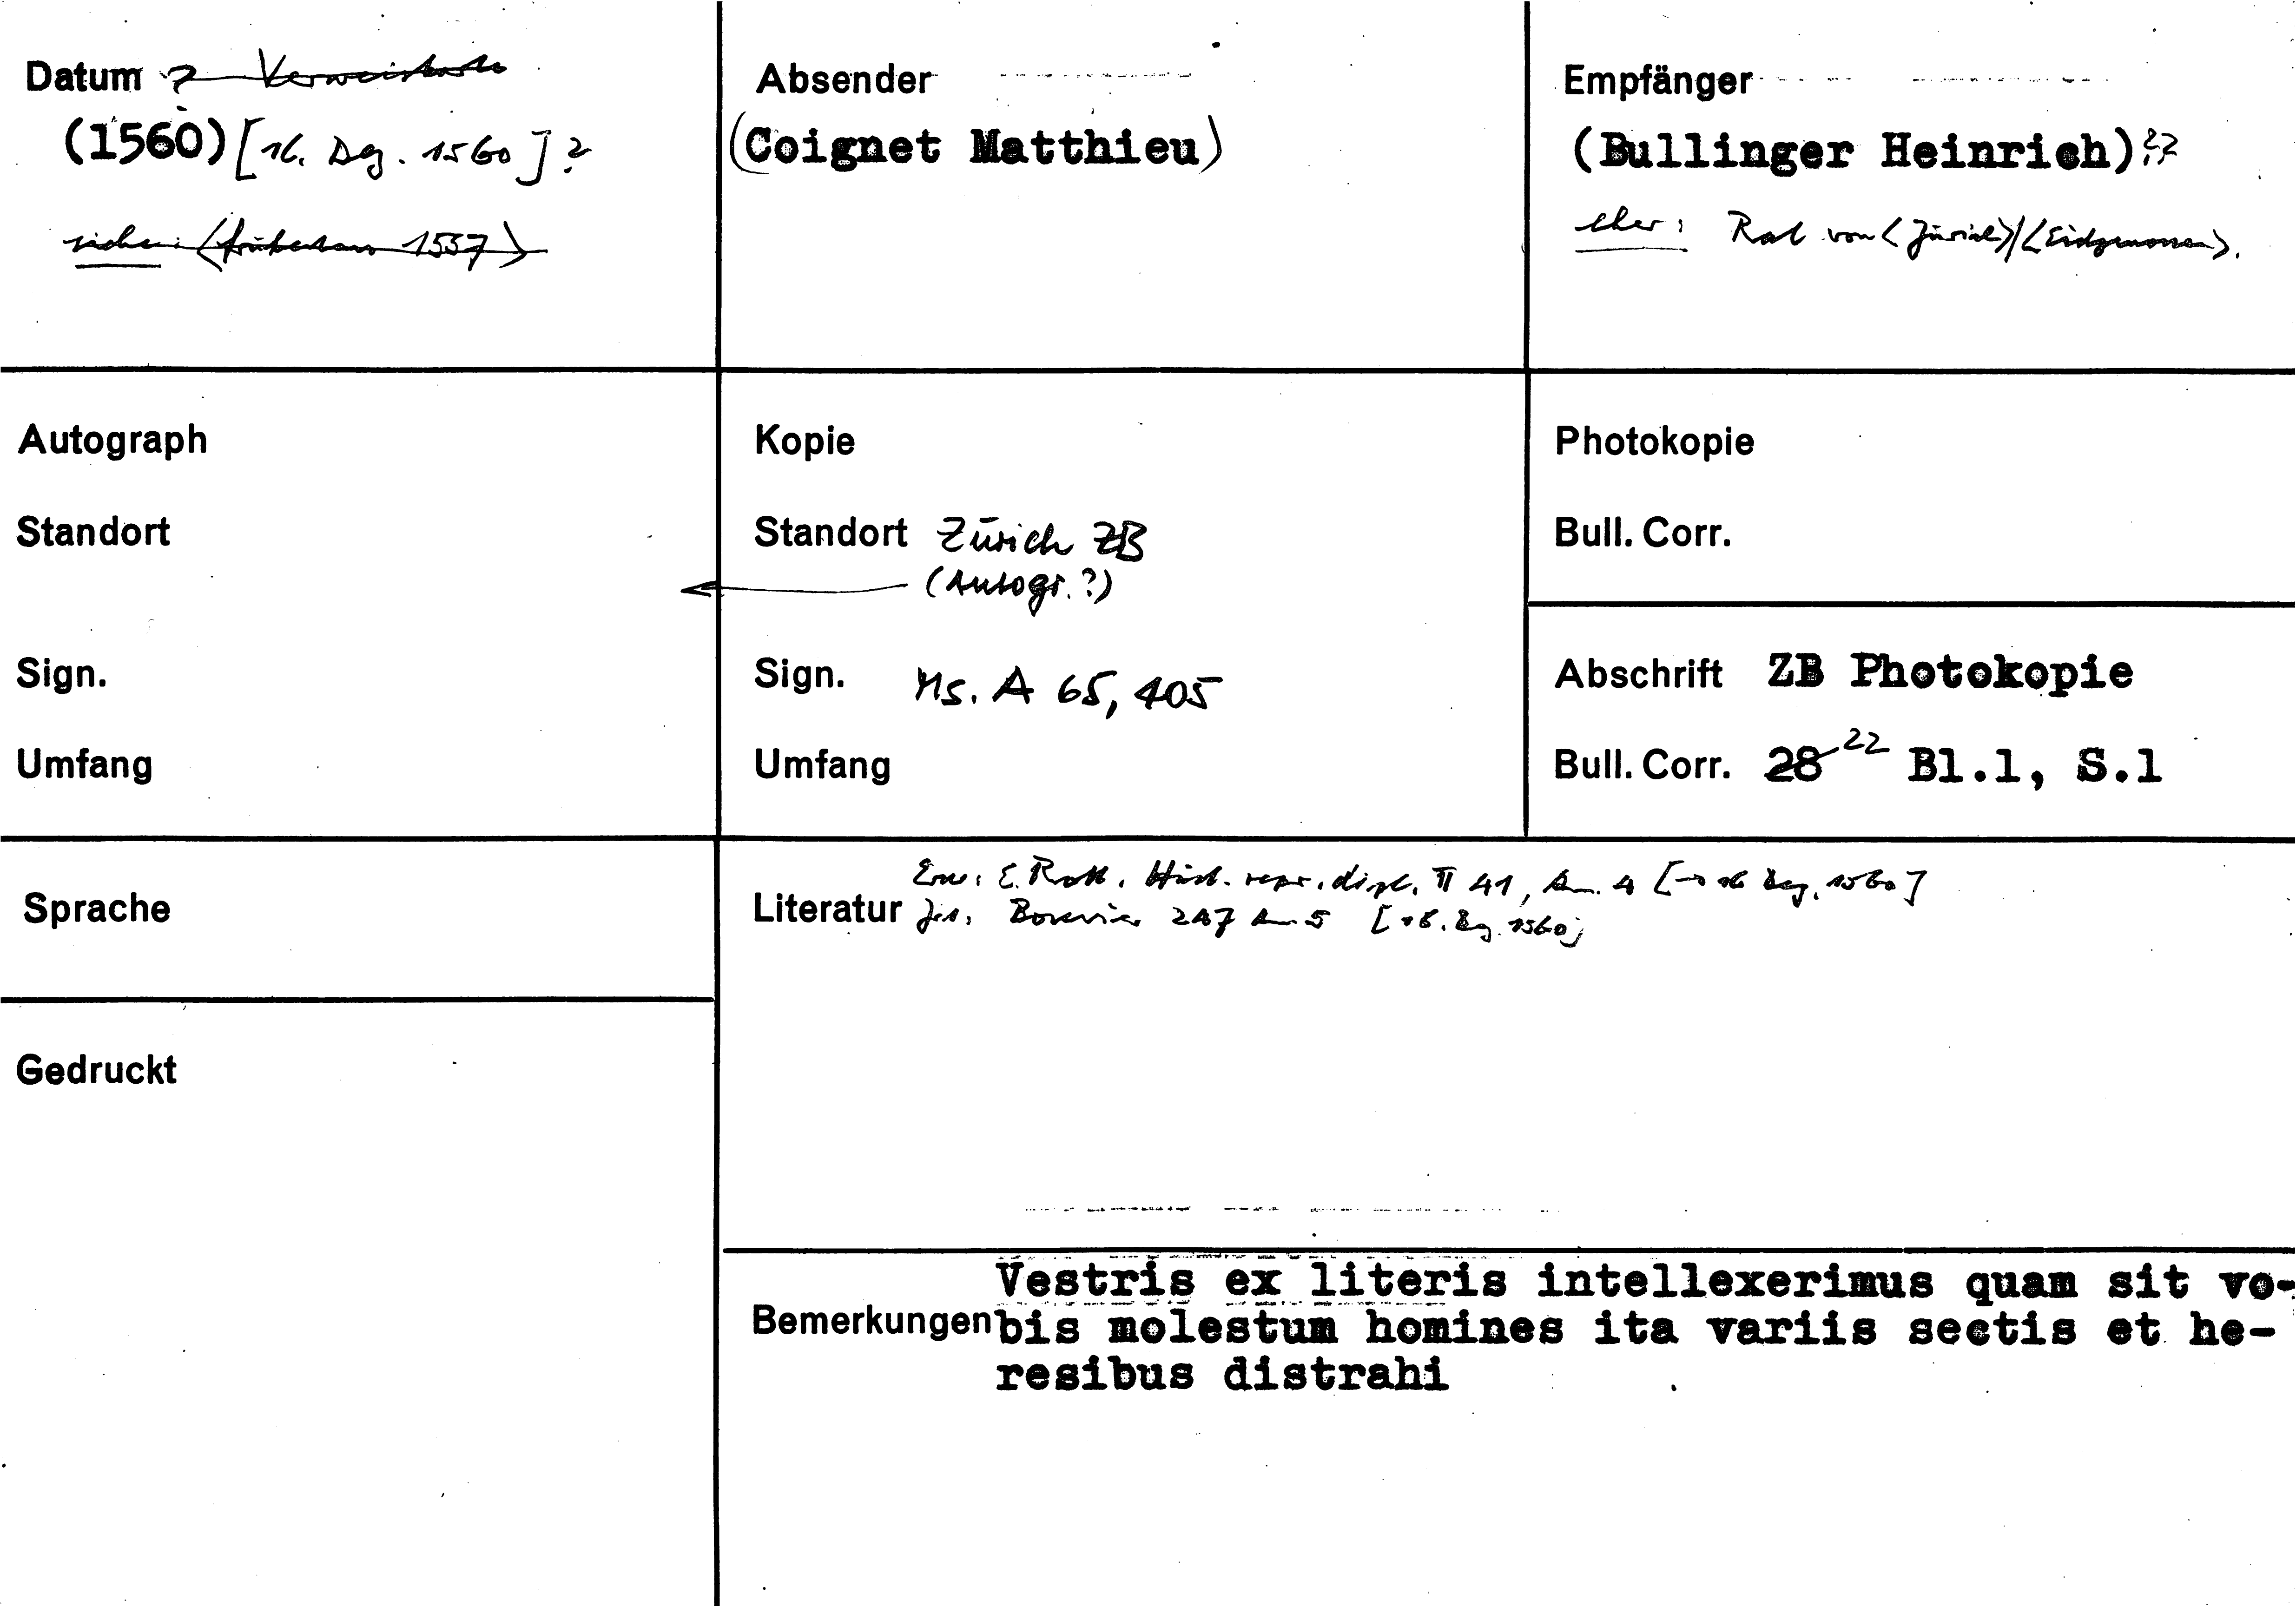 Datum ? Verweiskarte
(1560) [16. Dez. 1560]?
siehe: <frühestens 1557>
Absender
(Coignet Matthieu)
Empfänger
(Bullinger Heinrich)??
eher: Rat von <Zürich>/<Eidgenossen>.
Autograph
Standort
Sign.
Umfang
Kopie
Standort Zürich ZB
(Autogr.?)
Sign. Ms. A 65, 405
Umfang
Photokopie
Bull. Corr.
Abschrift ZB Photokopie
Bull. Corr. 28 22 Bl.1, S.1
Sprache
Gedruckt
Erw: E. Rott, Hist. repr. dipl. II 41, Am. 4 [→ 16 Dez. 1560]
Literatur 247 Am. 5 [16. Dez. 1560]
Vestris ex literis intellexerimus quam sit vo-
Bemerkungen bis molestum homines ita variis sectis et he-
resibus distrahi